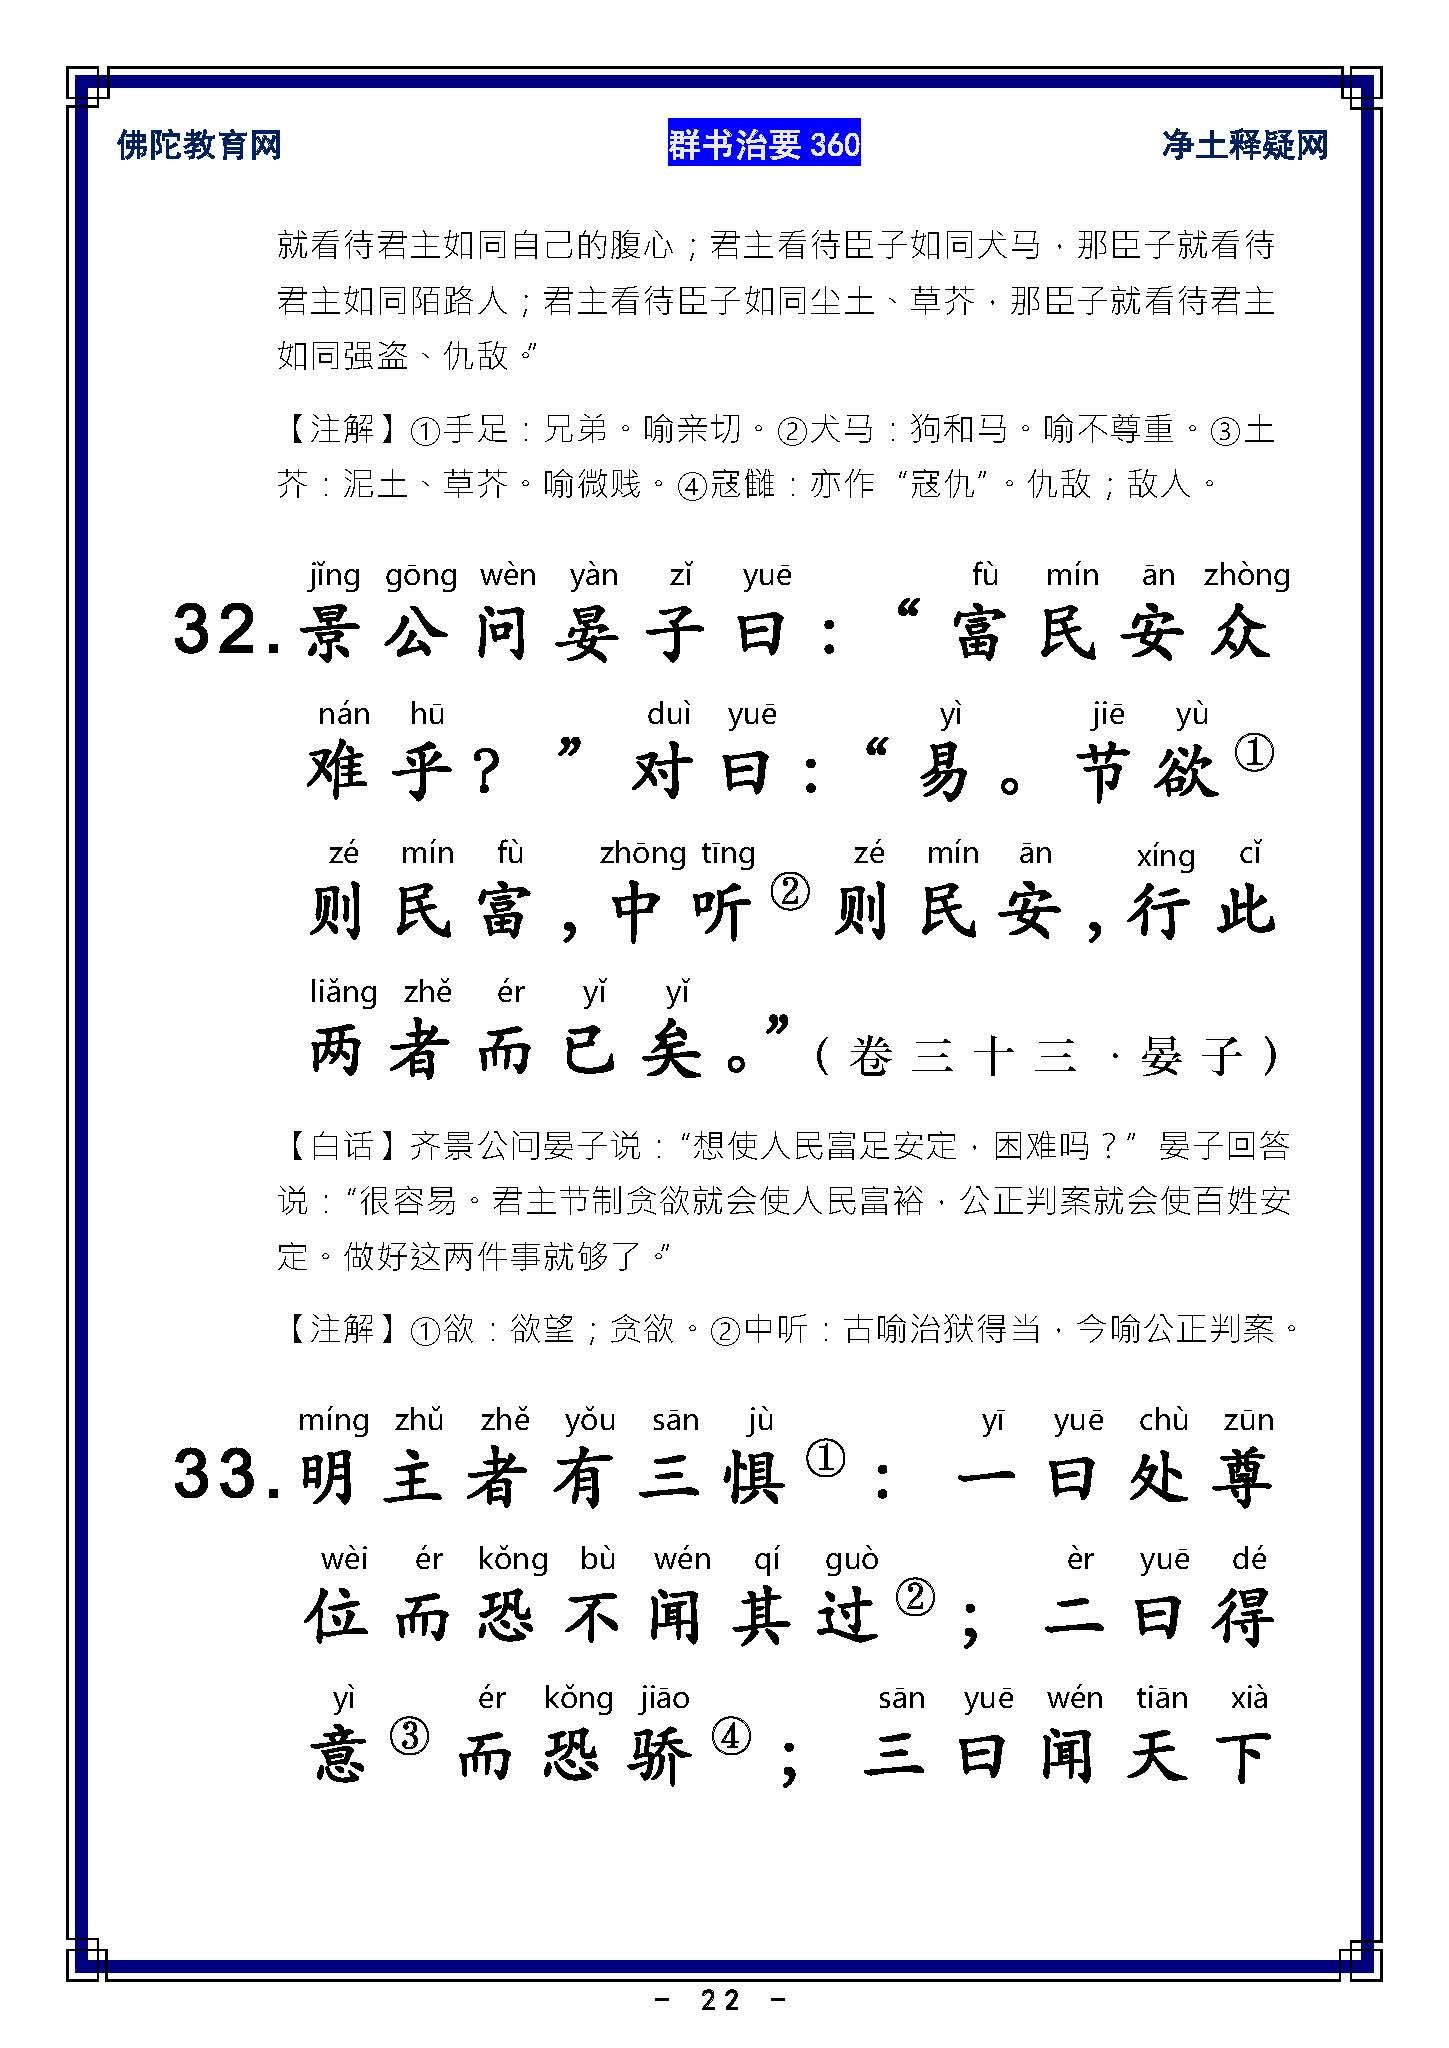 佛陀教育网 群书治要360 净土释疑网
就看待君主如同自己的腹心；君主看待臣子如同犬马，那臣子就看待
君主如同陌路人；君主看待臣子如同尘土、草芥，那臣子就看待君主
如同强盗、仇敌。”
【注解】①手足：兄弟。喻亲切。②犬马：狗和马。喻不尊重。③土
芥：泥土、草芥。喻微贱。④寇雠：亦作“寇仇”。仇敌；敌人。
jǐng gōng wèn yàn zǐ yuē fù mín ān zhòng
32.景公问晏子曰：“富民安众
nán hū duì yuē yì jiē yù
难乎？”对曰：“易。节欲①
zé mín fù zhōng tīng zé mín ān xíng cǐ
则民富，中听②则民安，行此
liǎng zhě ér yǐ yǐ
两者而已矣。”（卷三十三·晏子）
【白话】齐景公问晏子说：“想使人民富足安定，困难吗？”晏子回答
说：“很容易。君主节制贪欲就会使人民富裕，公正判案就会使百姓安
定。做好这两件事就够了。”
【注解】①欲：欲望；贪欲。②中听：古喻治狱得当，今喻公正判案。
míng zhǔ zhě yǒu sān jù yī yuē chù zūn
33.明主者有三惧①：一曰处尊
wèi ér kǒng bù wén qí guò èr yuē dé
位而恐不闻其过②；二曰得
yì ér kǒng jiāo sān yuē wén tiān xià
意③而恐骄④；三曰闻天下
- 22 -